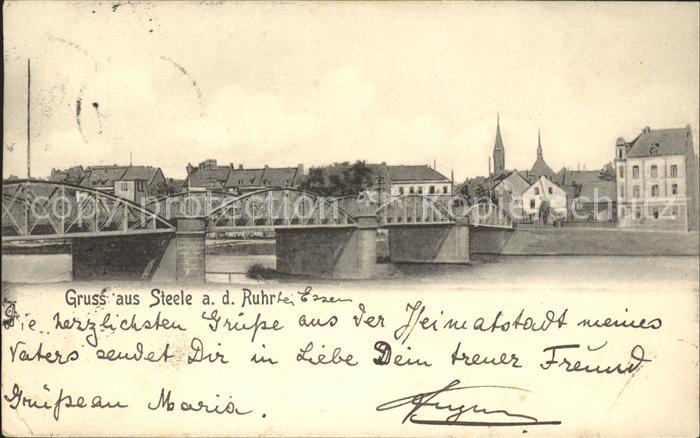 copy-protection by www.picclick.com
Gruss aus Steele a. d. Ruhr bei Essen
Die herzlichsten Grüße aus der Heimatstadt meines
Vaters sendet Dir in Liebe Dein treuer Freund
Grüße an Maria.